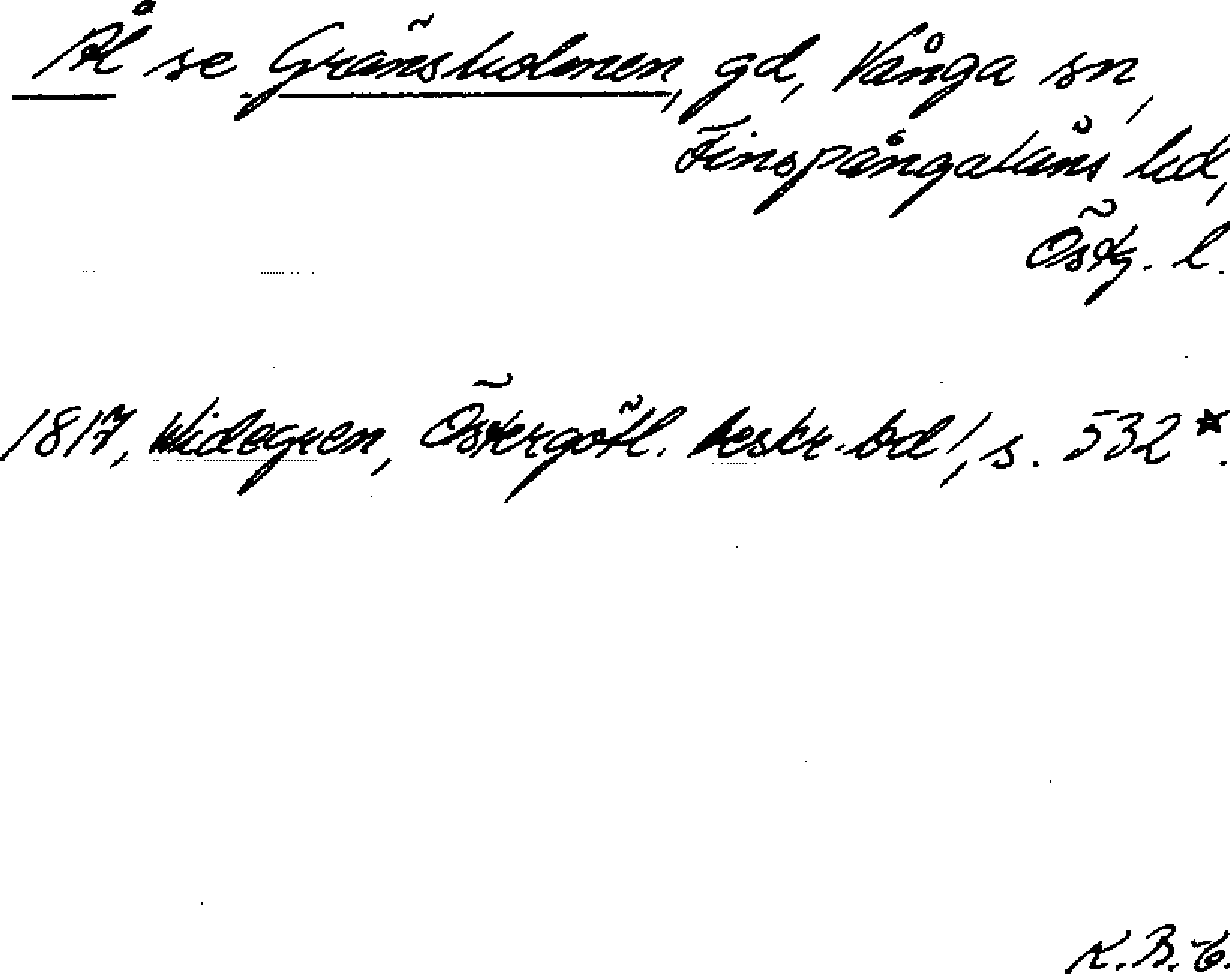 Ål se Gränsholmen, gd, Vånga sn,
Finspångaläns hd,
Östg. l.
1817, Widegren, Östergötl. beskr. bd 1, s. 532*.
K.B.E.